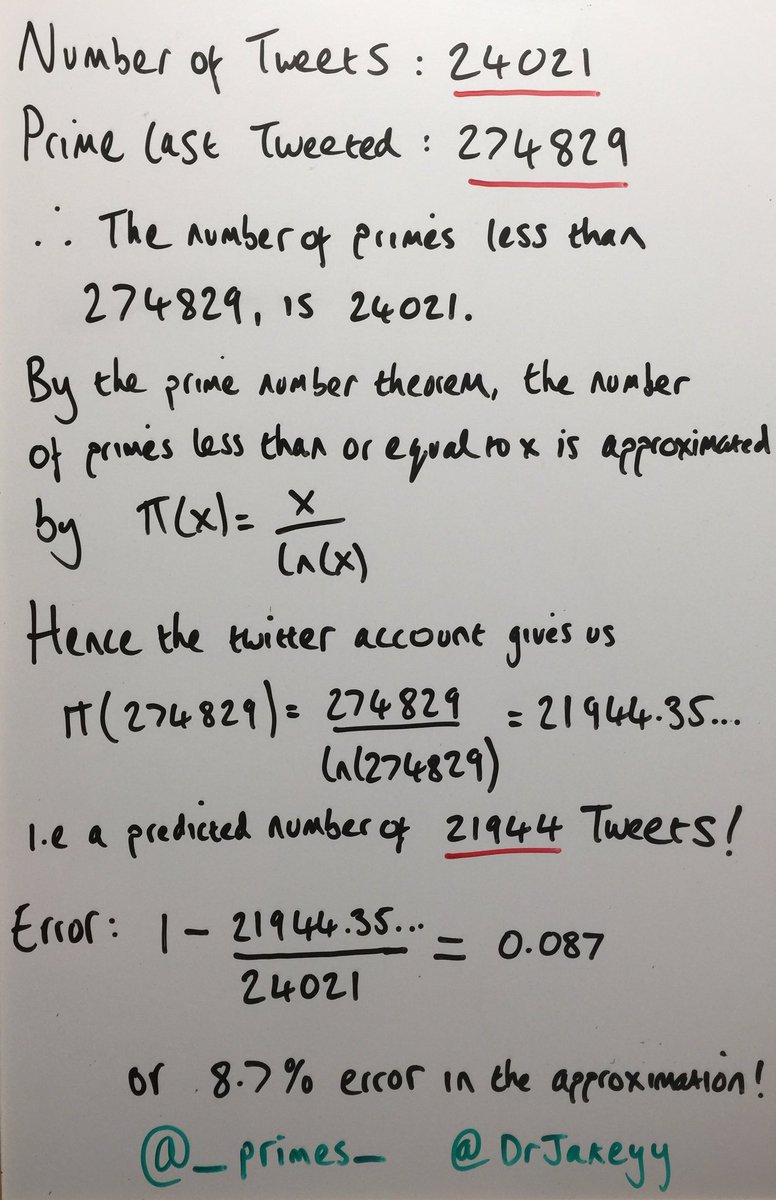 Number of Tweets : 24021
Prime last Tweeted : 274829
∴ The number of primes less than
274829, is 24021.
By the prime number theorem, the number
of primes less than or equal to x is approximated
by π(x) = x / ln(x)
Hence the twitter account gives us
π(274829) = 274829 / ln(274829) = 21944.35...
i.e a predicted number of 21944 Tweets!
Error: 1 - 21944.35... / 24021 = 0.087
or 8.7% error in the approximation!
@_primes_ @DrJakeyy